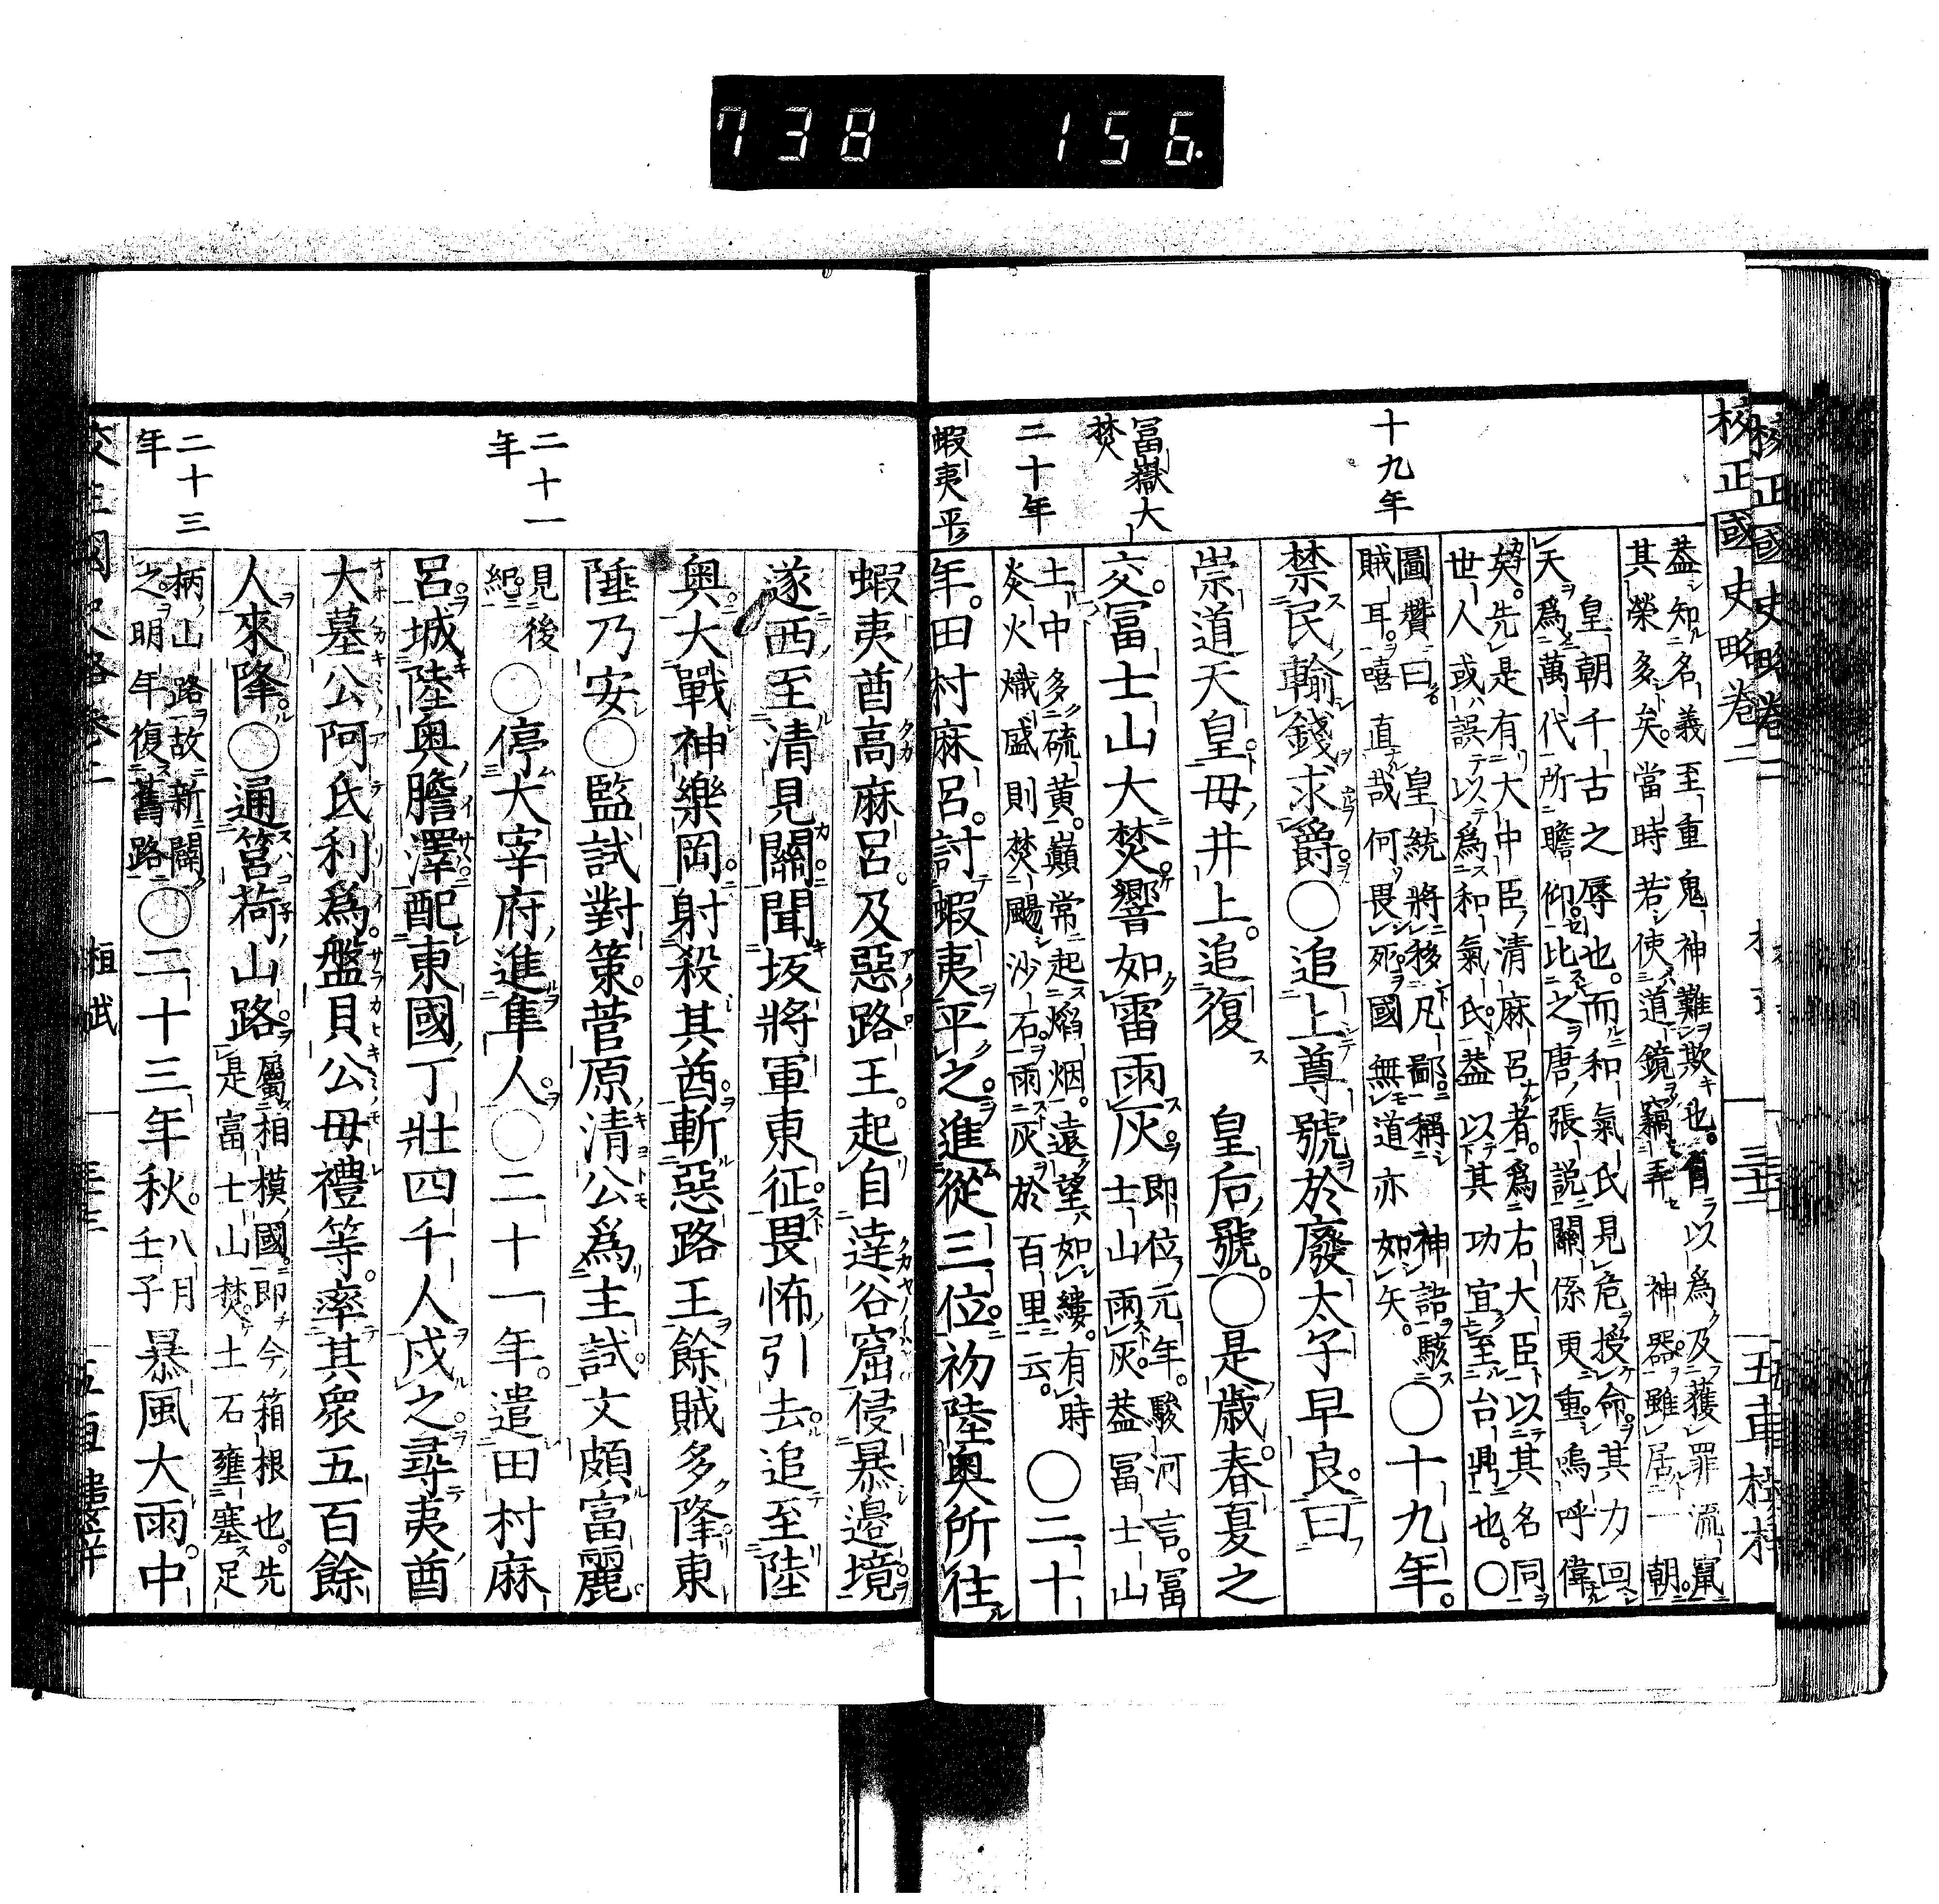 738 156.
校正國史略卷二
五車樓梓
十九年
冨嶽大
焚
二十年
蝦夷平
蓋知名義至重鬼神難欺也。有以爲及獲罪流竄
其榮多矣。當時若使道鏡竊弄 神器。雖居一朝
皇朝千古之辱也。而和氣氏見危授命。其力回
天爲萬代所瞻仰。比之唐張説關係更重。嗚呼偉
矣。先是有大中臣清麻呂者。爲右大臣以其名同
世人或誤以爲和氣氏。蓋以其功宜至台鼎也。○
圖贊曰 皇統將移凡鄙稱 神誥駭
賊耳。嘻直哉何畏死。國無道亦如矢。○十九年。
禁民輸錢求爵。○追上尊號於廢太子早良。曰
崇道天皇。母井上。追復 皇后號。○是歳。春夏之
交。冨士山大焚。響如雷雨灰。即位元年。駿河言。冨
士山雨灰。蓋冨士山
土中多硫黄。巔常起焰烟。遠望如縷。有時
炎火熾盛則焚颺沙石。雨灰於百里云。○二十
年。田村麻呂。討蝦夷平之。進從三位。初陸奥所往
蝦夷酋高麻呂。及惡路王。起自達谷窟侵暴邉境
遂西至清見關聞坂將軍東征。畏怖引去。追至陸
奥大戰神樂岡。射殺其酋。斬惡路王。餘賊多降。東
陲乃安○監試對策。菅原清公爲主試。文頗富麗。
見後
紀。○停大宰府進隼人。○二十一年。遣田村麻
呂。城陸奥膽澤。配東國丁壯四千人戍之。尋夷酋
大墓公阿氐利爲。盤具公母禮等。率其衆五百餘
人來降。○通筥荷山路。屬相模國。即今箱根也。先
是富士山焚。土石壅塞足
柄山路。故新闢
之。明年復舊路○二十三年秋。八月
壬子暴風大雨。中
二十一
年
二十三
年
桓武